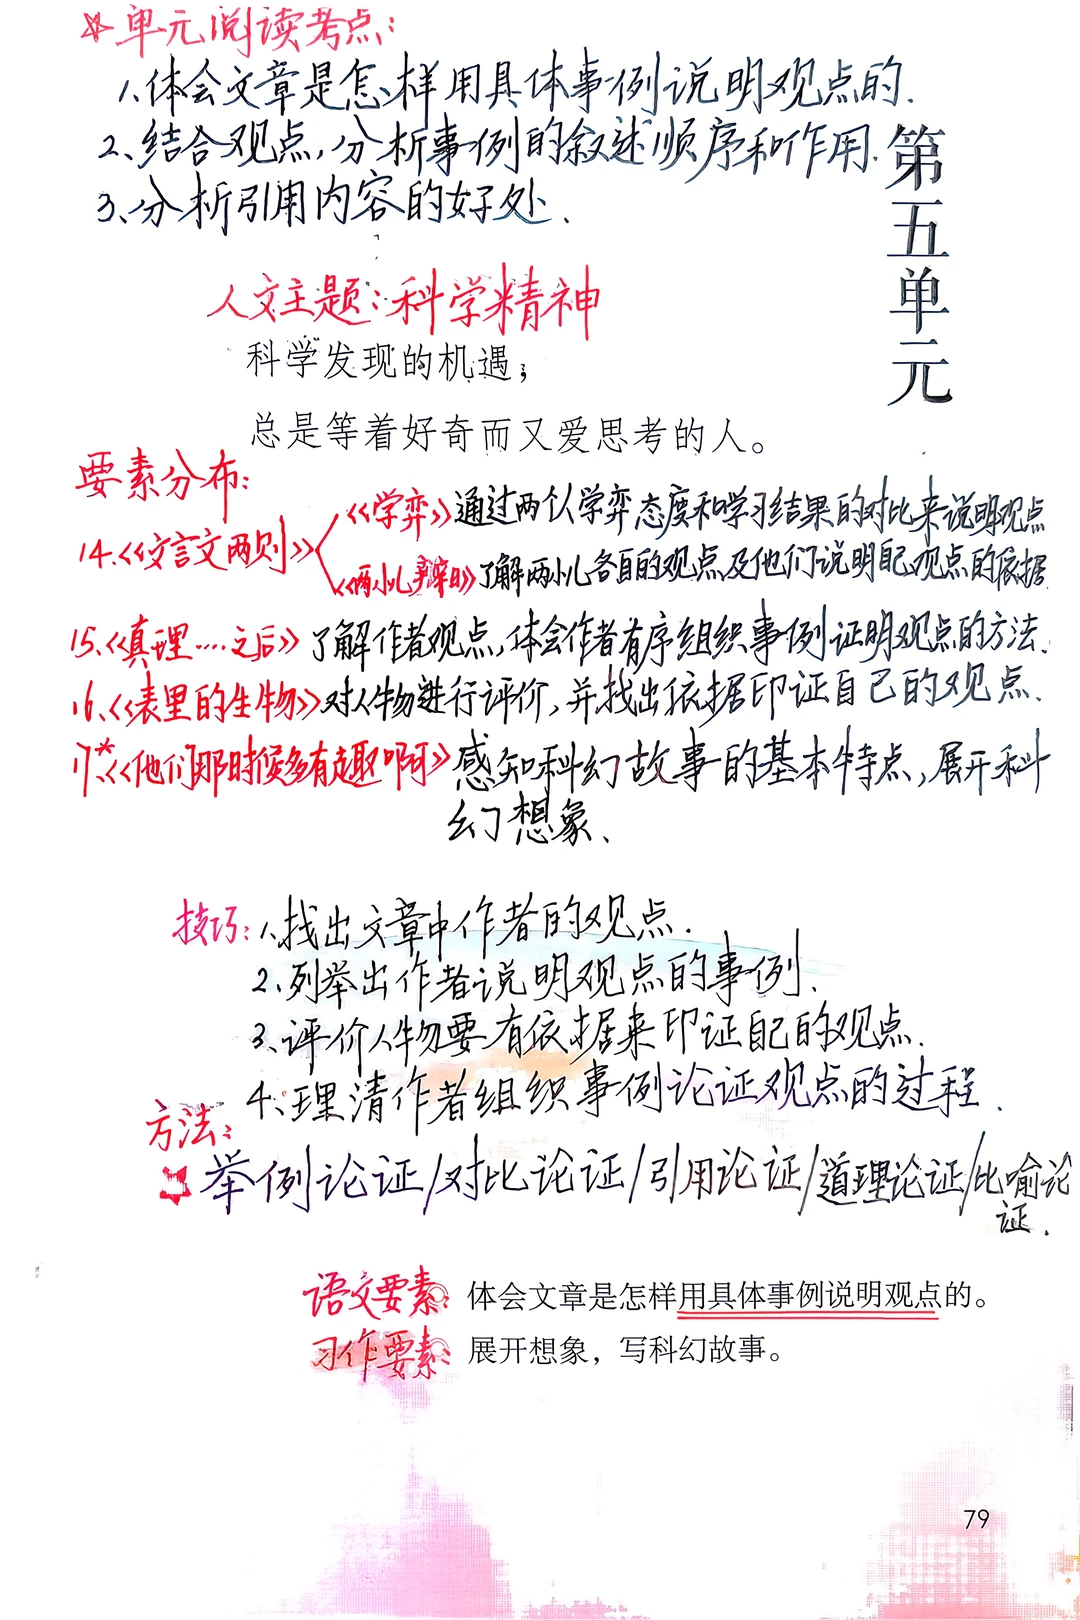 ☆单元阅读考点:
1、体会文章是怎样用具体事例说明观点的.
2、结合观点,分析事例的叙述顺序和作用.
3、分析引用内容的好处.
第五单元
人文主题:科学精神
科学发现的机遇，
总是等着好奇而又爱思考的人。
要素分布:
14.《文言文两则》
《学弈》通过两个人学弈态度和学习结果的对比来说明观点
《两小儿辩日》了解两小儿各自的观点及他们说明自己观点的依据
15、《真理....之后》了解作者观点,体会作者有序组织事例证明观点的方法.
16、《表里的生物》对人物进行评价,并找出依据印证自己的观点.
17*、《他们那时候多有趣啊》感知科幻故事的基本特点,展开科
幻想象.
技巧:1、找出文章中作者的观点.
2、列举出作者说明观点的事例.
3、评价人物要有依据来印证自己的观点.
4、理清作者组织事例论证观点的过程.
方法:
☆举例论证/对比论证/引用论证/道理论证/比喻论
证.
语文要素:体会文章是怎样用具体事例说明观点的。
习作要素:展开想象，写科幻故事。
79